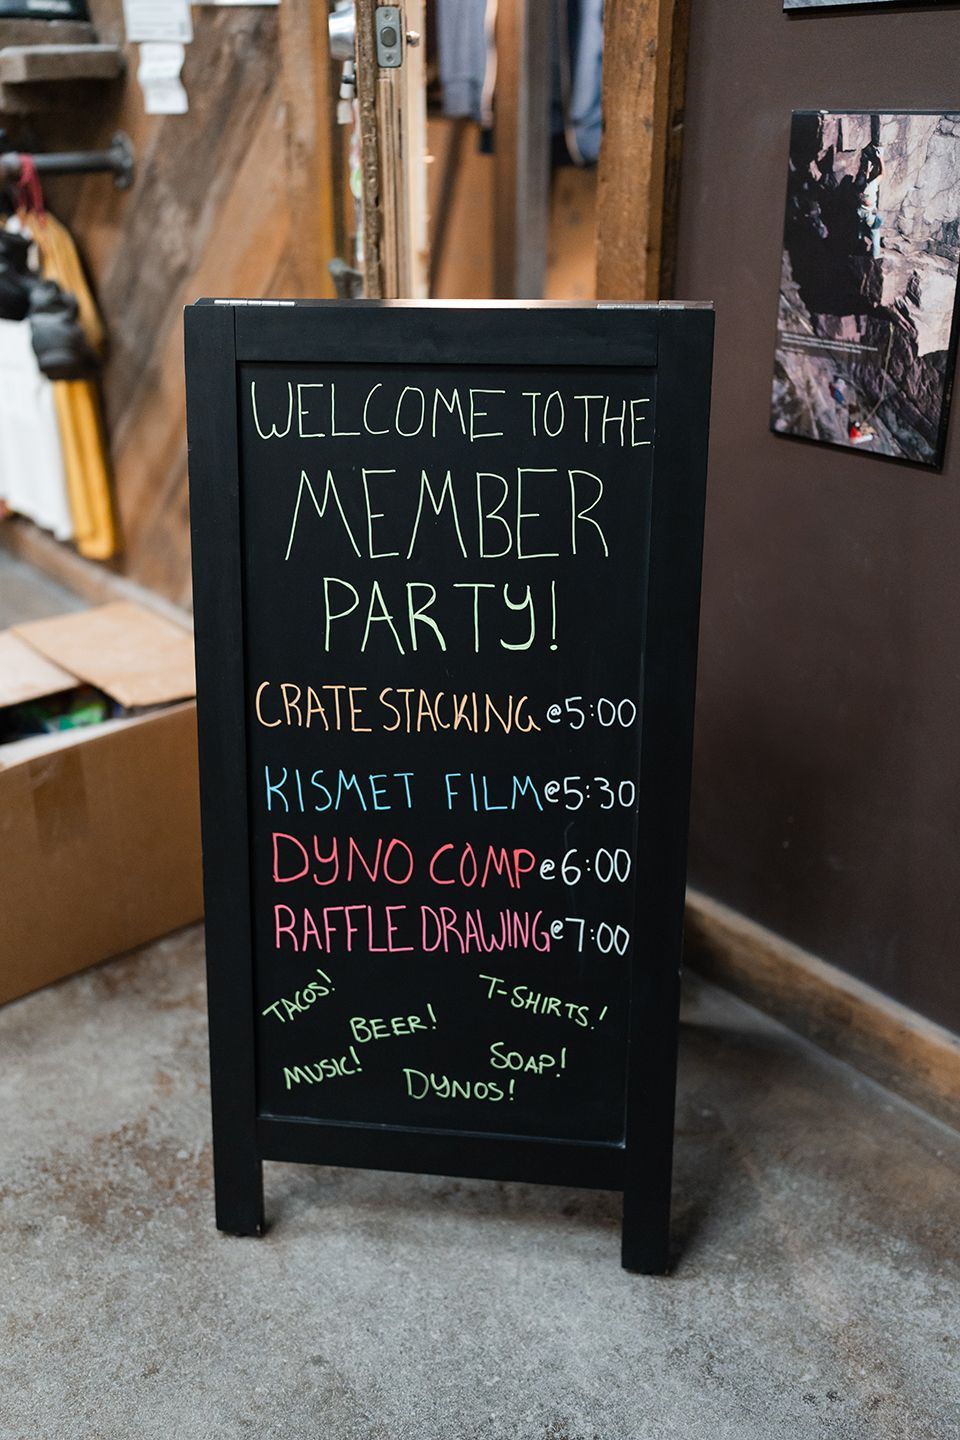 WELCOME TO THE
MEMBER
PARTY!
CRATE STACKING @5:00
KISMET FILM @5:30
DYNO COMP @6:00
RAFFLE DRAWING @7:00
TACOS!
T-SHIRTS!
BEER!
SOAP!
MUSIC!
DYNOS!